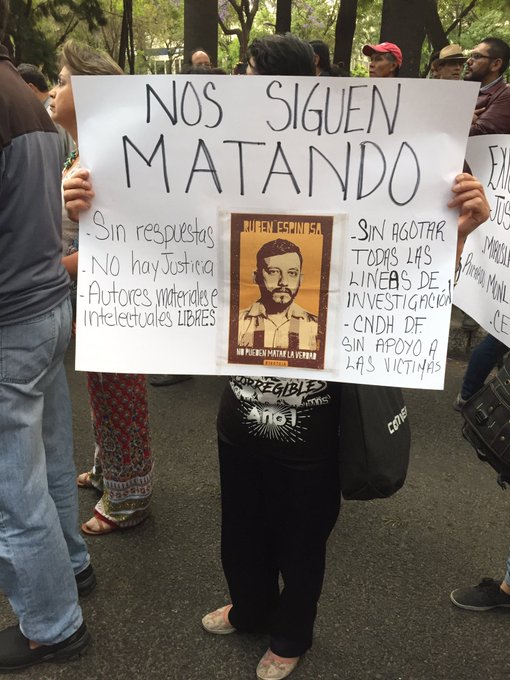 NOS SIGUEN
MATANDO
- Sin respuestas
- NO hay Justicia
- Autores materiales e
intelectuales LIBRES
RUBEN ESPINOSA
NO PUEDEN MATAR LA VERDAD
- SIN AGOTAR
TODAS LAS
LINEAS DE
INVESTIGACIÓN
- CNDH DF
SIN APOYO A
LAS VICTIMAS
CORREGIBLES
Año 1